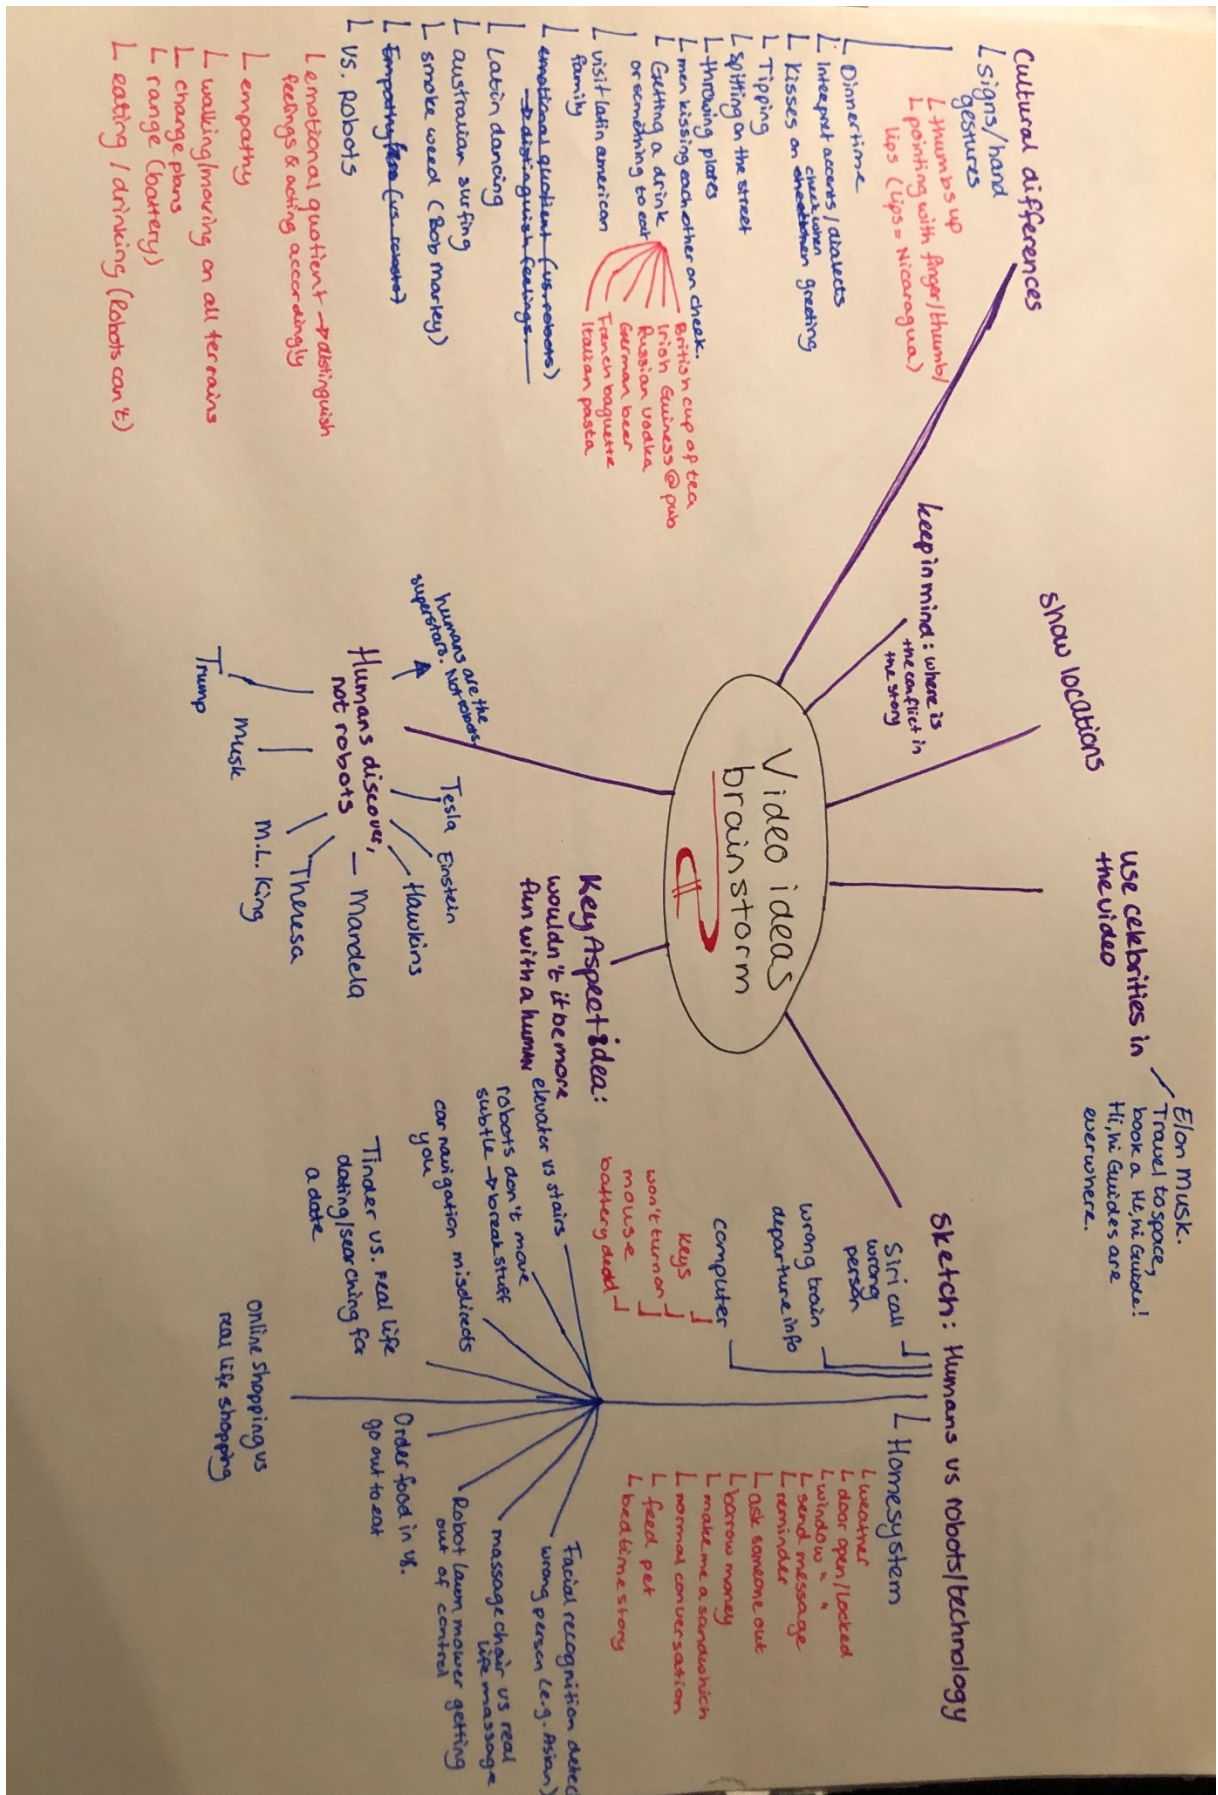 Video ideas
brainstorm
Cultural differences
L signs/hand
gestures
L thumbs up
L pointing with finger/thumb/
lips (lips = Nicaragua)
L Dinnertime
L Interpret accents/dialects
L Kisses on cheek when greeting
L Tipping
L spitting on the street
L throwing plates
L men kissing each other on cheek.
L Getting a drink
or something to eat
British cup of tea
Irish Guiness @ pub
Russian vodka
German beer
French baguette
Italian pasta
L visit latin american
family
L emotional quotient (vs. robots)
→ distinguish feelings
L Latin dancing
L australian surfing
L smoke weed (Bob Marley)
L Empathy (vs robots)
L vs. Robots
L emotional quotient → distinguish
feelings & acting accordingly
L empathy
L walking/moving on all terrains
L change plans
L range (battery)
L eating / drinking (Robots can't)
keep in mind: where is
the conflict in
the story
show locations
use celebrities in
the video
Elon Musk.
Travel to space,
book a Hi,hi Guide!
Hi,hi Guides are
everwhere.
Sketch: Humans vs robots/technology
Siri call
wrong
person
wrong train
departure info
computer
keys
won't turn on
mouse
battery dead
L Homesystem
L weather
L door open/locked
L window " "
L send message
L reminder
L ask someone out
L borrow money
L make me a sandwhich
L normal conversation
L feed pet
L bedtime story
elevator vs stairs
robots don't move
subtle → break stuff
car navigation misdirects
you
Tinder vs. real life
dating/searching for
a date
online shopping vs
real life shopping
Order food in vs.
go out to eat
Robot lawn mower getting
out of control
massage chair vs real
life massage
Facial recognition detec
wrong person (e.g. Asian)
Key Aspect & idea:
wouldn't it be more
fun with a human
Humans discover,
not robots
humans are the
superstars. Not robots.
Tesla
Einstein
Hawkins
Mandela
Theresa
M.L. King
Musk
Trump